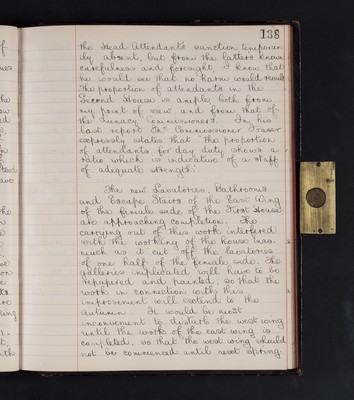 138
the Head Attendant's sanction temporar-
ily absent, but from the latter's known
carefulness and foresight I know that
he would see that no harm would result.
The proportion of attendants in the
Second House is ample both from
my point of view and from that of
the Lunacy Commissioners. In his
last report Dr. Commissioner Fraser
expressly states that "the proportion
of attendants for day duty shows a
ratio which is indicative of a staff
of adequate strength."
The new Lavatories, Bathrooms
and Escape Stairs of the East Wing
of the female side of the First House,
are approaching completion. The
carrying out of this work interfered
with the working of the house inas-
much as it cut off the lavatories
of one half of the female side. The
galleries implicated will have to be
repapered and painted, so that the
work in connection with this
improvement will extend to the
autumn. It would be most
inconvenient to disturb the west wing
until the work of the east wing is
completed, so that the west wing should
not be commenced until next spring.